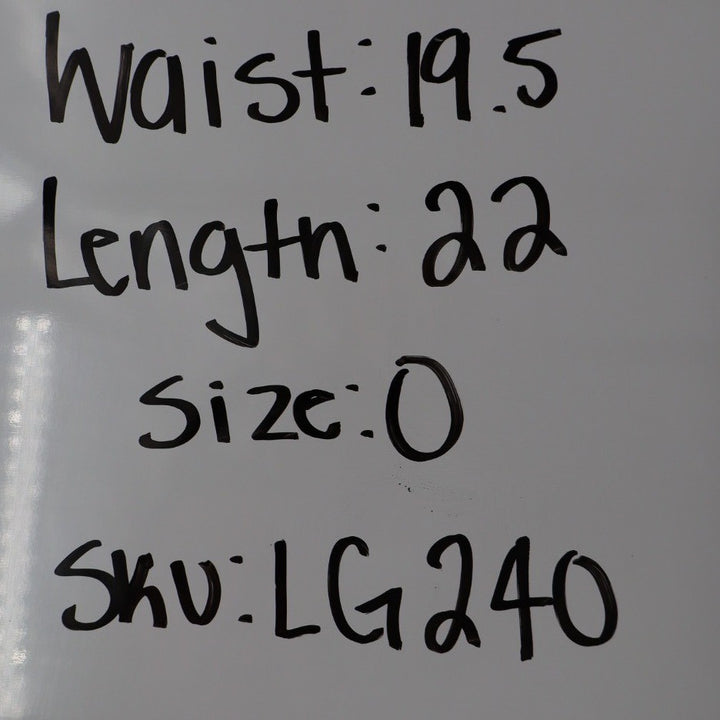 Waist: 19.5
Length: 22
Size: 0
SKU: LG240